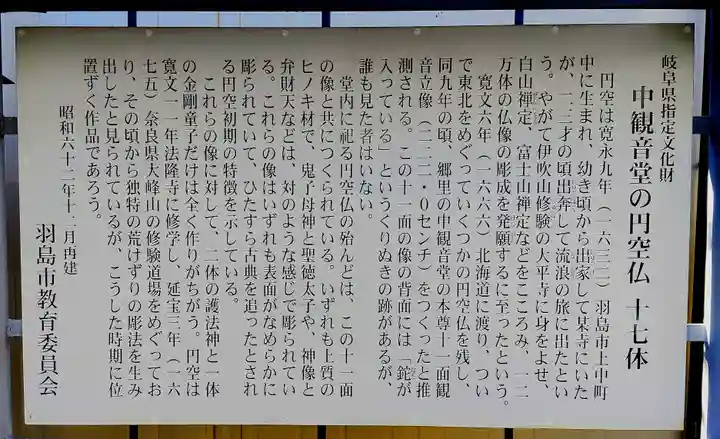 岐阜県指定文化財
中観音堂の円空仏 十七体
円空は寛永九年（一六三二）羽島市上中町
中に生まれ、幼き頃から出家して某寺にいた
が、二三才の頃出奔して流浪の旅に出たとい
う。やがて伊吹山修験の太平寺に身をよせ、
白山禅定、富士山禅定などをこころみ、一二
万体の仏像の彫成を発願するに至ったという。
寛文六年（一六六六）北海道に渡り、つい
で東北をめぐっていくつかの円空仏を残し、
同九年の頃、郷里の中観音堂の本尊十一面観
音立像（二二二・０センチ）をつくったと推
測される。この十一面の像の背面には「鉈が
入っている」というくりぬきの跡があるが、
誰も見た者はいない。
堂内に祀る円空仏の殆んどは、この十一面
の像と共につくられている。いずれも上質の
ヒノキ材で、鬼子母神と聖徳太子や、神像と
弁財天などは、対のような感じで彫られてい
る。これらの像はいずれも表面がなめらかに
彫られていて、ひたすら古典を追ったとされ
る円空初期の特徴を示している。
これらの像に対して、二体の護法神と一体
の金剛童子だけは全く作りがちがう。円空は
寛文一一年法隆寺に修学し、延宝三年（一六
七五）奈良県大峰山の修験道場をめぐってお
り、その頃から独特の荒けずりの彫法を生み
出したと見られているが、こうした時期に位
置ずく作品であろう。
昭和六十二年十二月再建
羽島市教育委員会